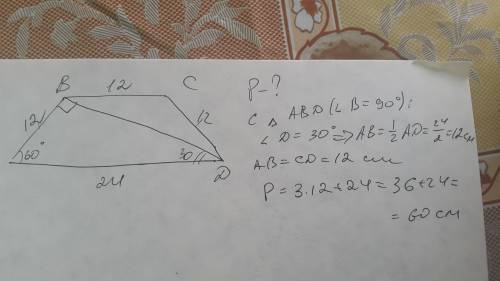 B 12 C
12 12
60° 30
D
24
P-?
С △ ABD (∠ B = 90°):
∠ D = 30° => AB = 1/2 AD = 24/2 = 12 см
AB = CD = 12 см
P = 3·12 + 24 = 36 + 24 =
= 60 см